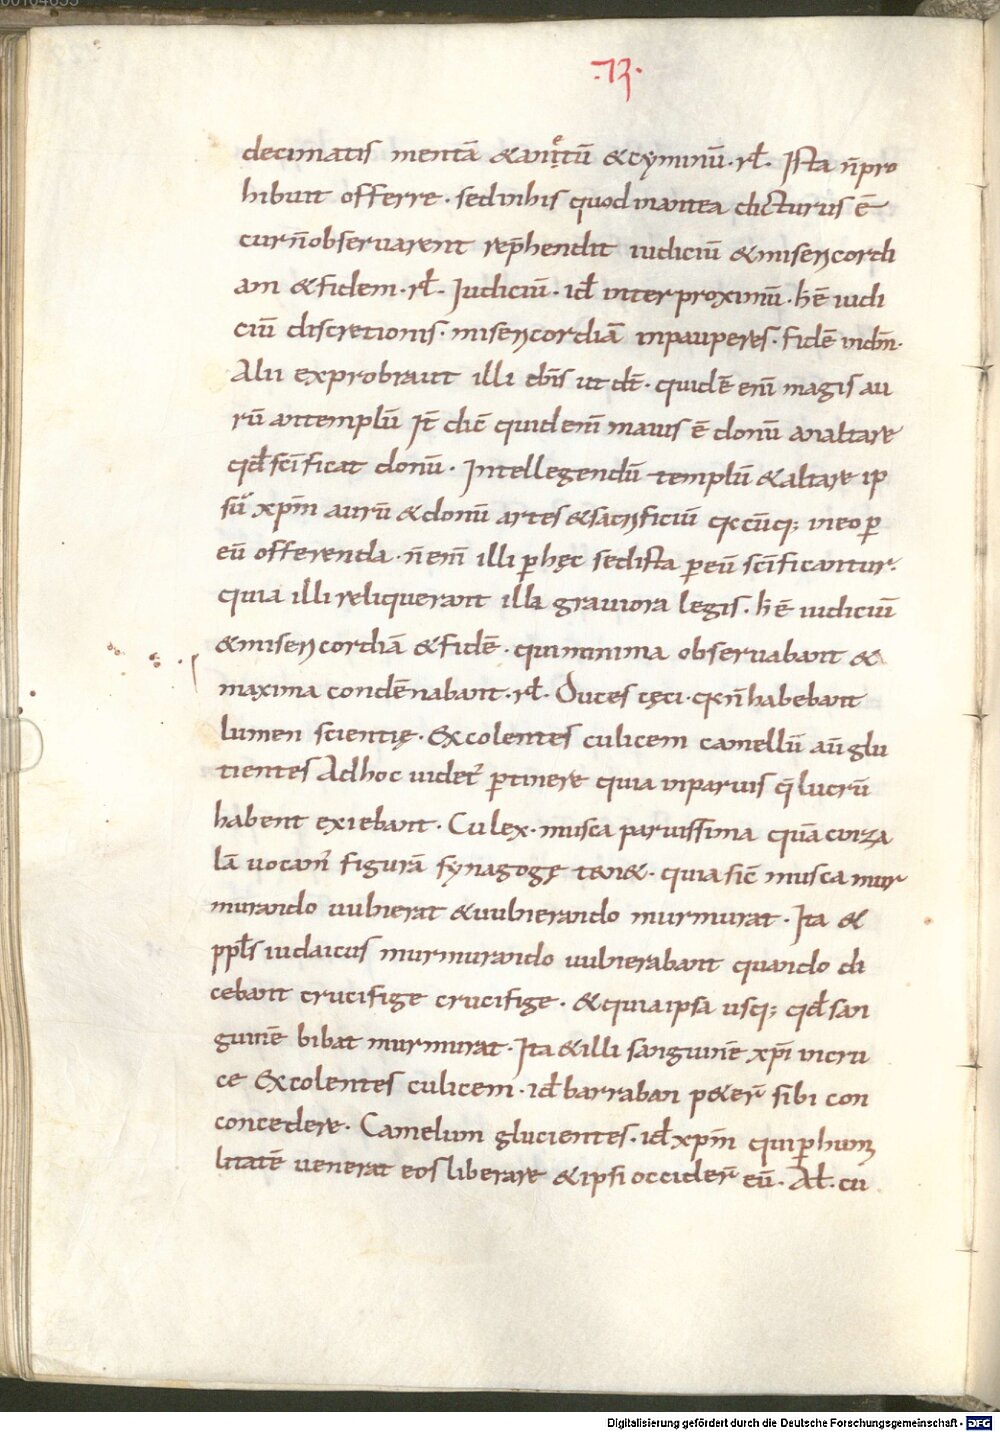 ·73·
decimatis mentā & anetū & cyminū · rł · Ista n̄ pro
hibuit offerre · sed in his quod in antea dicturus ē
cur n̄ observarent rep̄hendit iudiciū & misericordi
am & fidem · rł · Iudiciū · id̄ inter proximū · h̄ ē iudi
ciū discretionis · misericordiā in pauperes · fidē in dm̄ ·
Alii exprobraut illi dn̄s ut dt̄ · quid ē eni͞m magis au
rū an templū It̄ dic̄ quid eni͞m maius ē donū an altare
qd̄ sc̄ificat donū · Intellegendū templū & altare ip
sū xpm̄ aurū & donū artes & sacrificiū q̨cūq; in eo p̲
eū offerenda · n̄ eni͞m illi p̲ hęc sed ista p̲ eū sc̄ificantur ·
quia illi reliquerant illa graviora legis · h̄ ē iudiciū
& misericordiā & fidē · qui minima observabant &
maxima condēnabant · rł · Duces cęci · q̨ n̄ habebant
lumen scientię · Excolentes culicem camellū aū glu
tientes Ad hoc videt᷑ p̲tinere quia in parvis q̄ lucrū
habent exiebant · Culex · musca parvissima quā cinza
lā vocam᷑ figurā synagogę ten& · quia sic̄ musca mur
murando vulnerat & vulnerando murmurat · Ita &
ppłs iudaicus murmurando vulnerabant quando di
cebant crucifige crucifige · & quia ipsa usq; qd̄ san
guinē bibat murmurat · Ita & illi sanguinē xpi͞ in cru
ce Excolentes culicem · id̄ barraban p&er̄ sibi con
concedere · Camelum glucientes · id̄ xpm̄ qui p̲ humi
litatē venerat eos liberare & ipsi occider̄ eū · Ał · cu
Digitalisierung gefördert durch die Deutsche Forschungsgemeinschaft - DFG